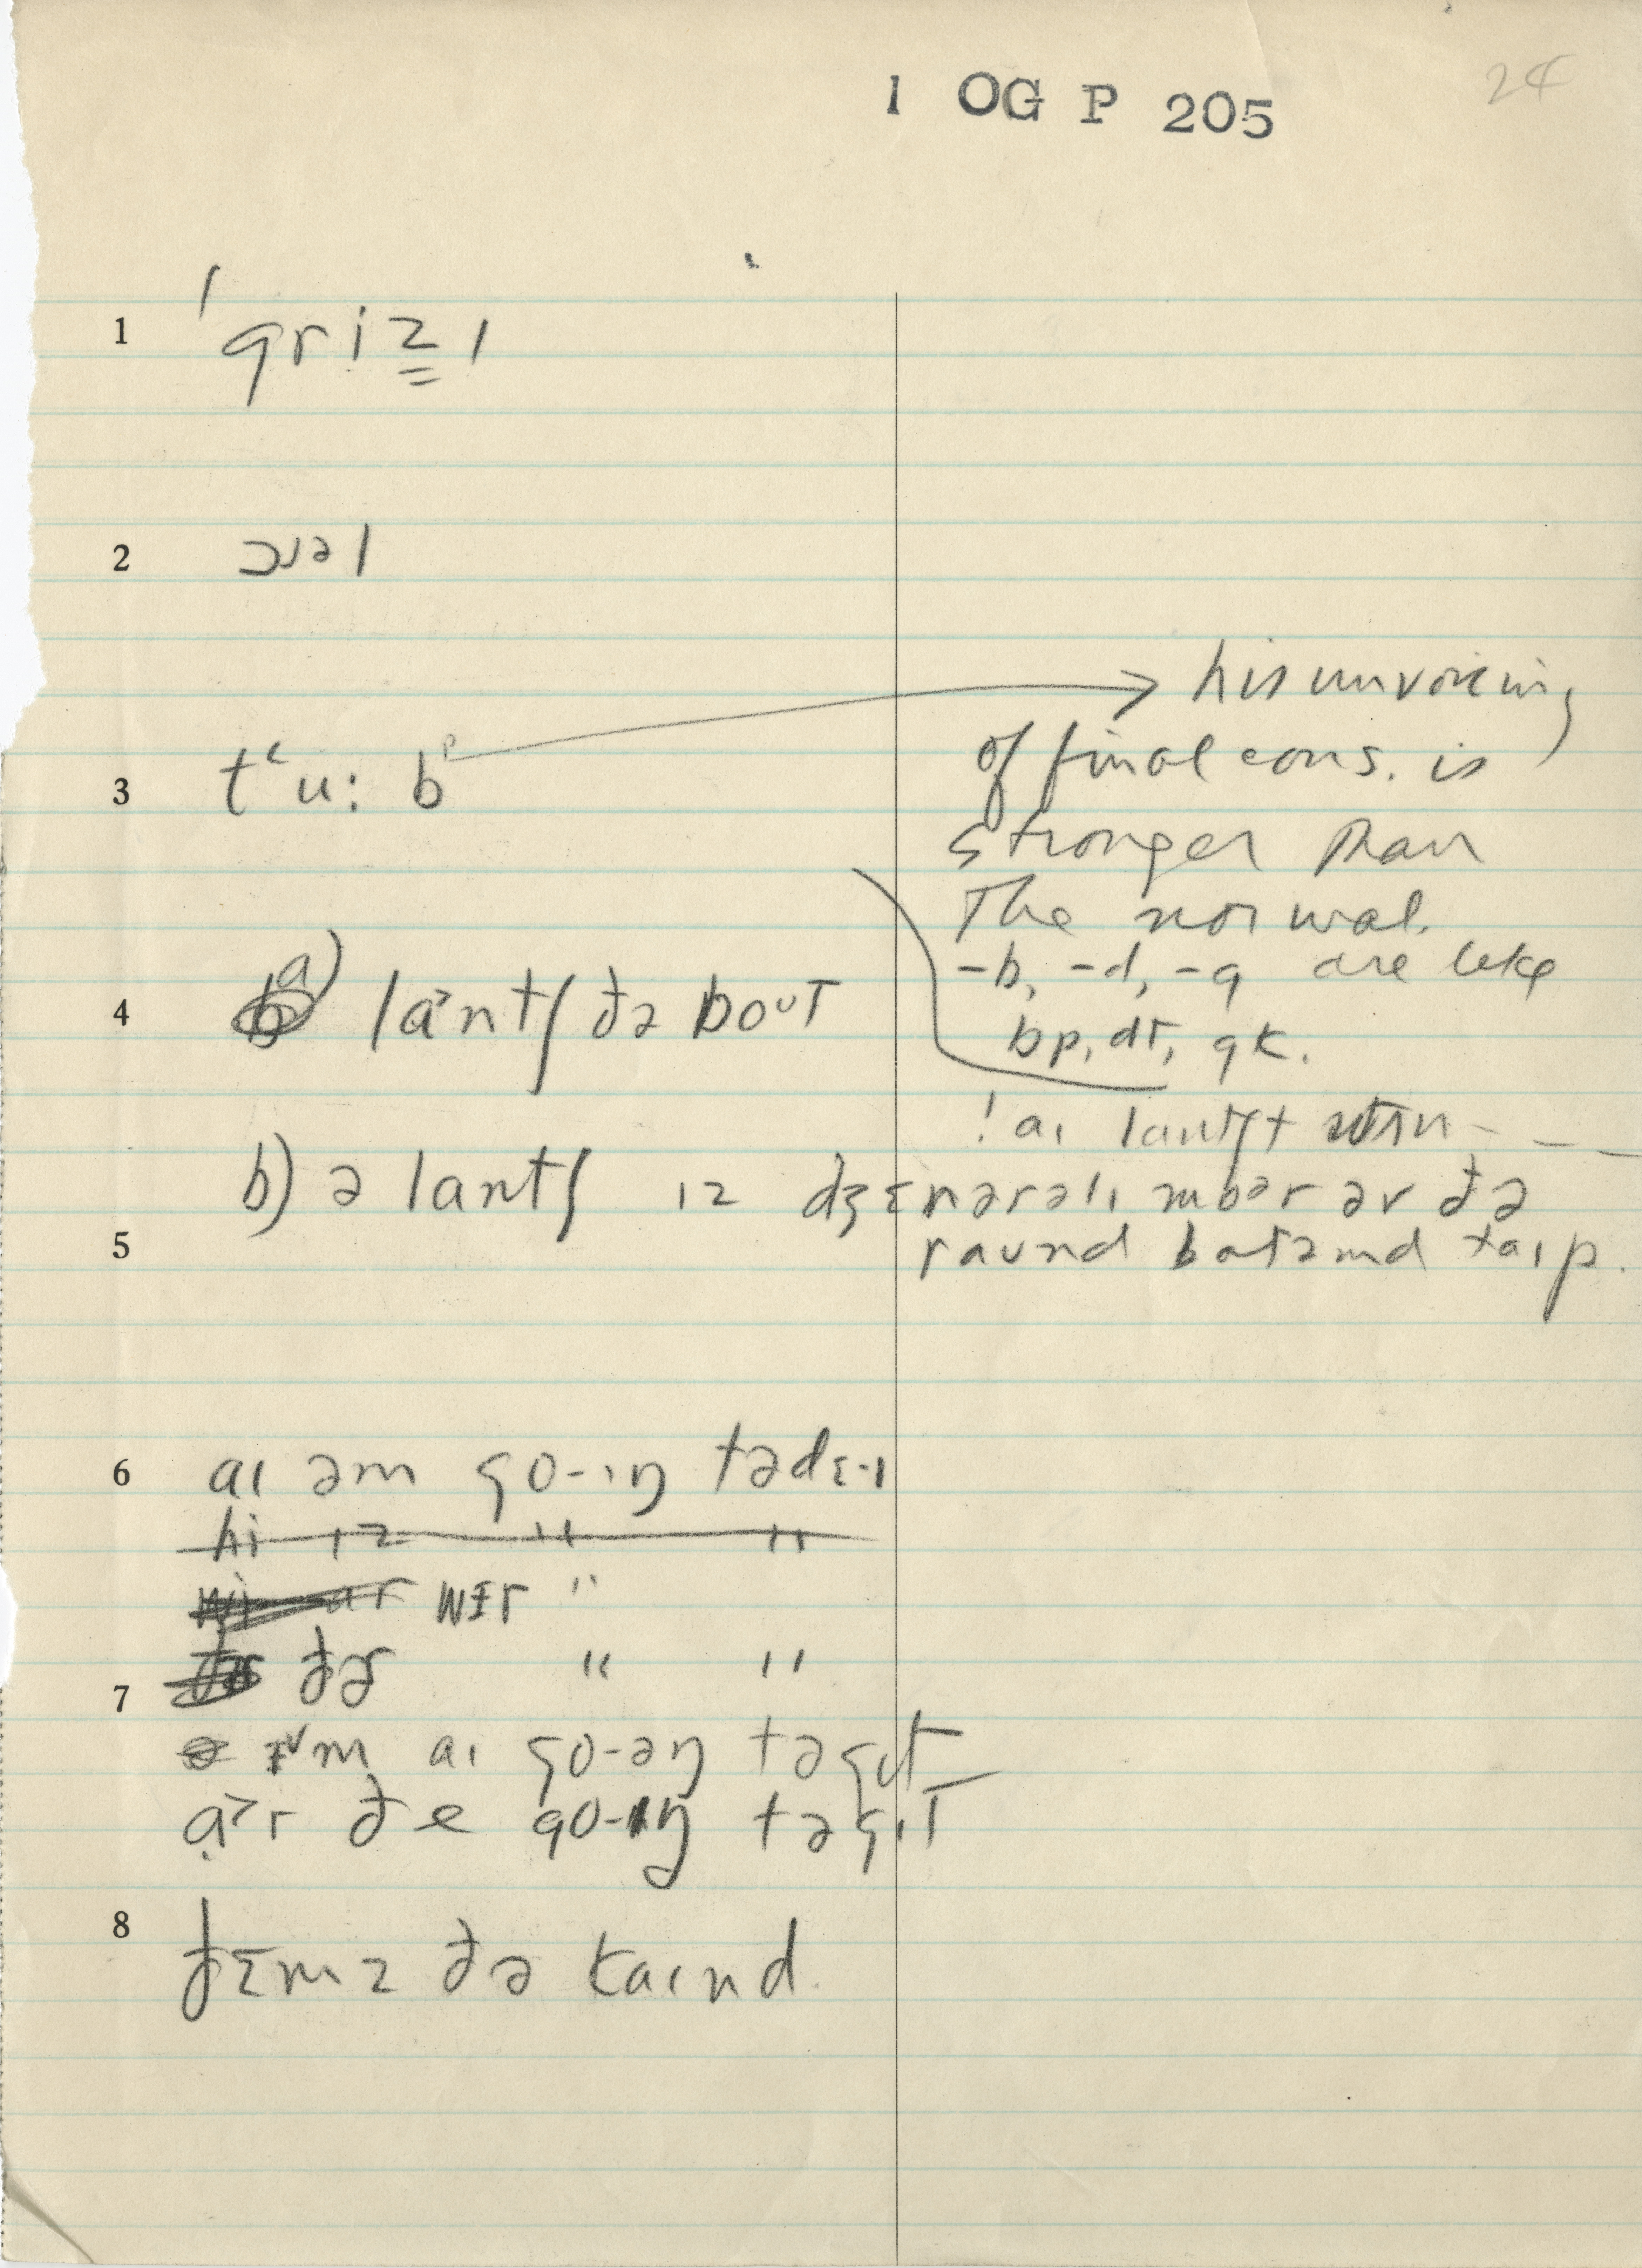 1 OG P 205
24
1 ˈgrizɪ
2 ɔɪəl
3 tʻu:bᵖ → his unvoicing
of final cons. is
stronger than
the normal.
-b, -d, -g are like
bp, dt, gk.
4 a) la˃ntʃ ðə boᴜt
! aɪ lantʃt
b) ə lantʃ ɪz dʒɛnərəlɪ mbər əv ðə
raʊnd batəmd taɪp.
5
6 aɪ əm go-ɪŋ tədɛ-ɪ
hi ɪz " "
wi ar wɪr "
ðər " "
7
əm aɪ go-əŋ təgɪt
a˃r ðe go-ɪŋ təgɪt
8 ðɛmz ðə kaɪnd.